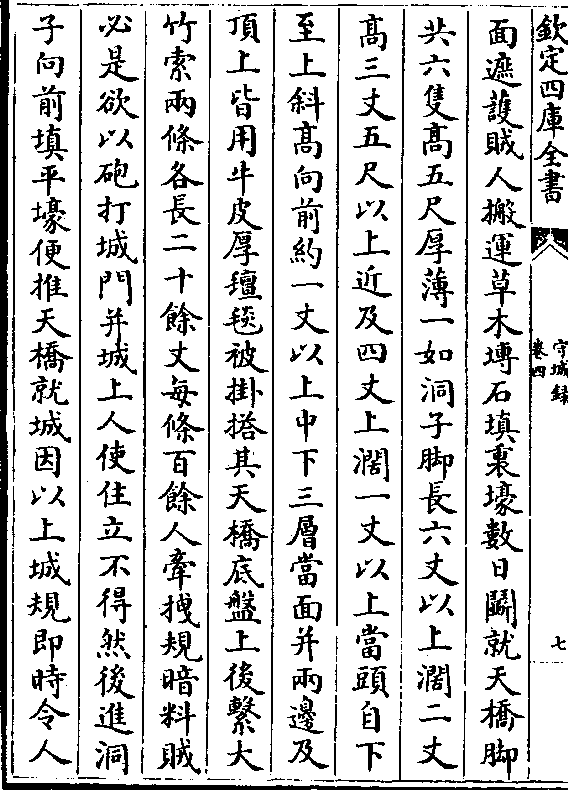 欽定四庫全書
守城録
卷四
七
面遮護賊人搬運草木塼石填裏壕數日鬭就天橋脚
共六隻髙五尺厚薄一如洞子脚長六丈以上濶二丈
髙三丈五尺以上近及四丈上濶一丈以上當頭自下
至上斜髙向前約一丈以上中下三層當面并兩邊及
頂上皆用牛皮厚氊毯被掛搭其天橋底盤上後繫大
竹索兩條各長二十餘丈每條百餘人牽拽規暗料賊
必是欲以砲打城門并城上人使住立不得然後進洞
子向前填平壕便推天橋就城因以上城規即時令人